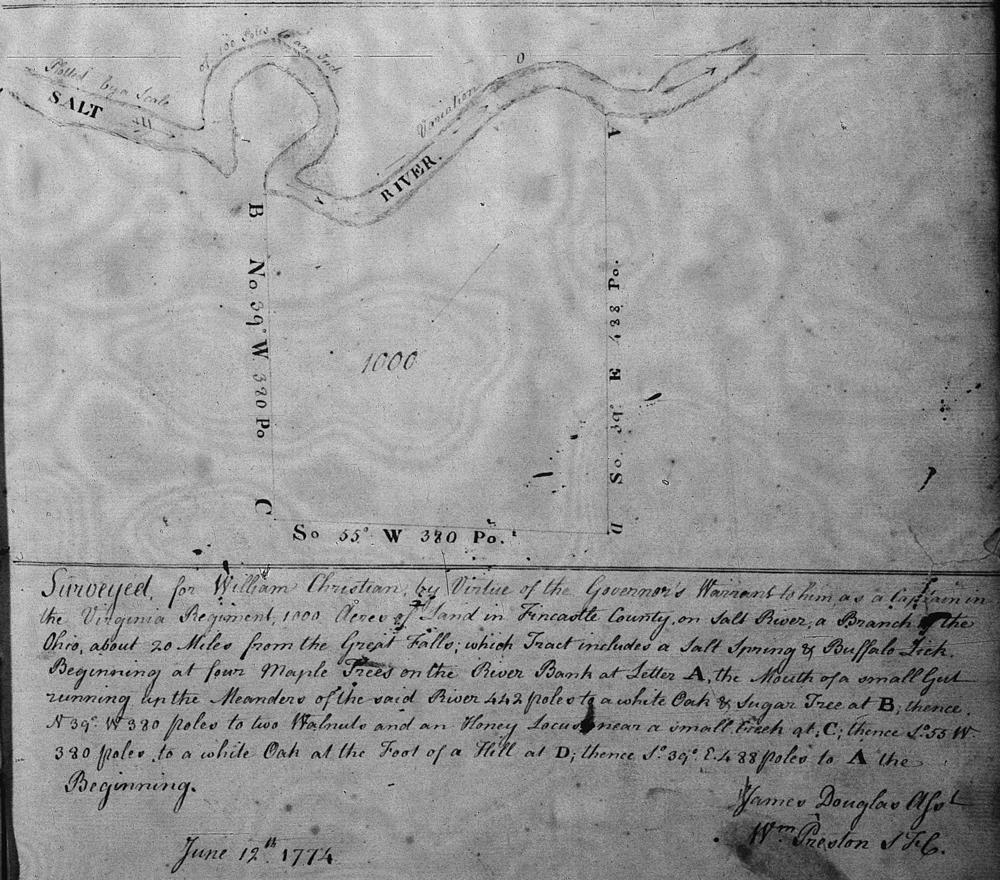 Plotted by a Scale
of 100 Poles to an Inch
Variation 0
SALT
RIVER.
A
B
No. 39° W 380 Po
1000
So. 39° E 488 Po.
C
D
So 55° W 380 Po.
Surveyed, for William Christian, by Virtue of the Governor's Warrant to him as a Captain in
the Virginia Regiment, 1000 Acres of Land in Fincastle County, on Salt River, a Branch of the
Ohio, about 20 Miles from the Great Falls; which Tract includes a Salt Spring & Buffalo Lick.
Beginning at four Maple Trees on the River Bank at Letter A, the Mouth of a small Gut
running up the Meanders of the said River 442 poles to a white Oak & Sugar Tree at B; thence
N 39° W 380 poles to two Walnuts and an Honey Locust near a small Creek at C; thence So. 55 W
380 poles to a white Oak at the Foot of a Hill at D; thence So. 39° E. 488 poles to A the
Beginning.
James Douglas Asst
Wm Preston S F C.
June 12th 1774